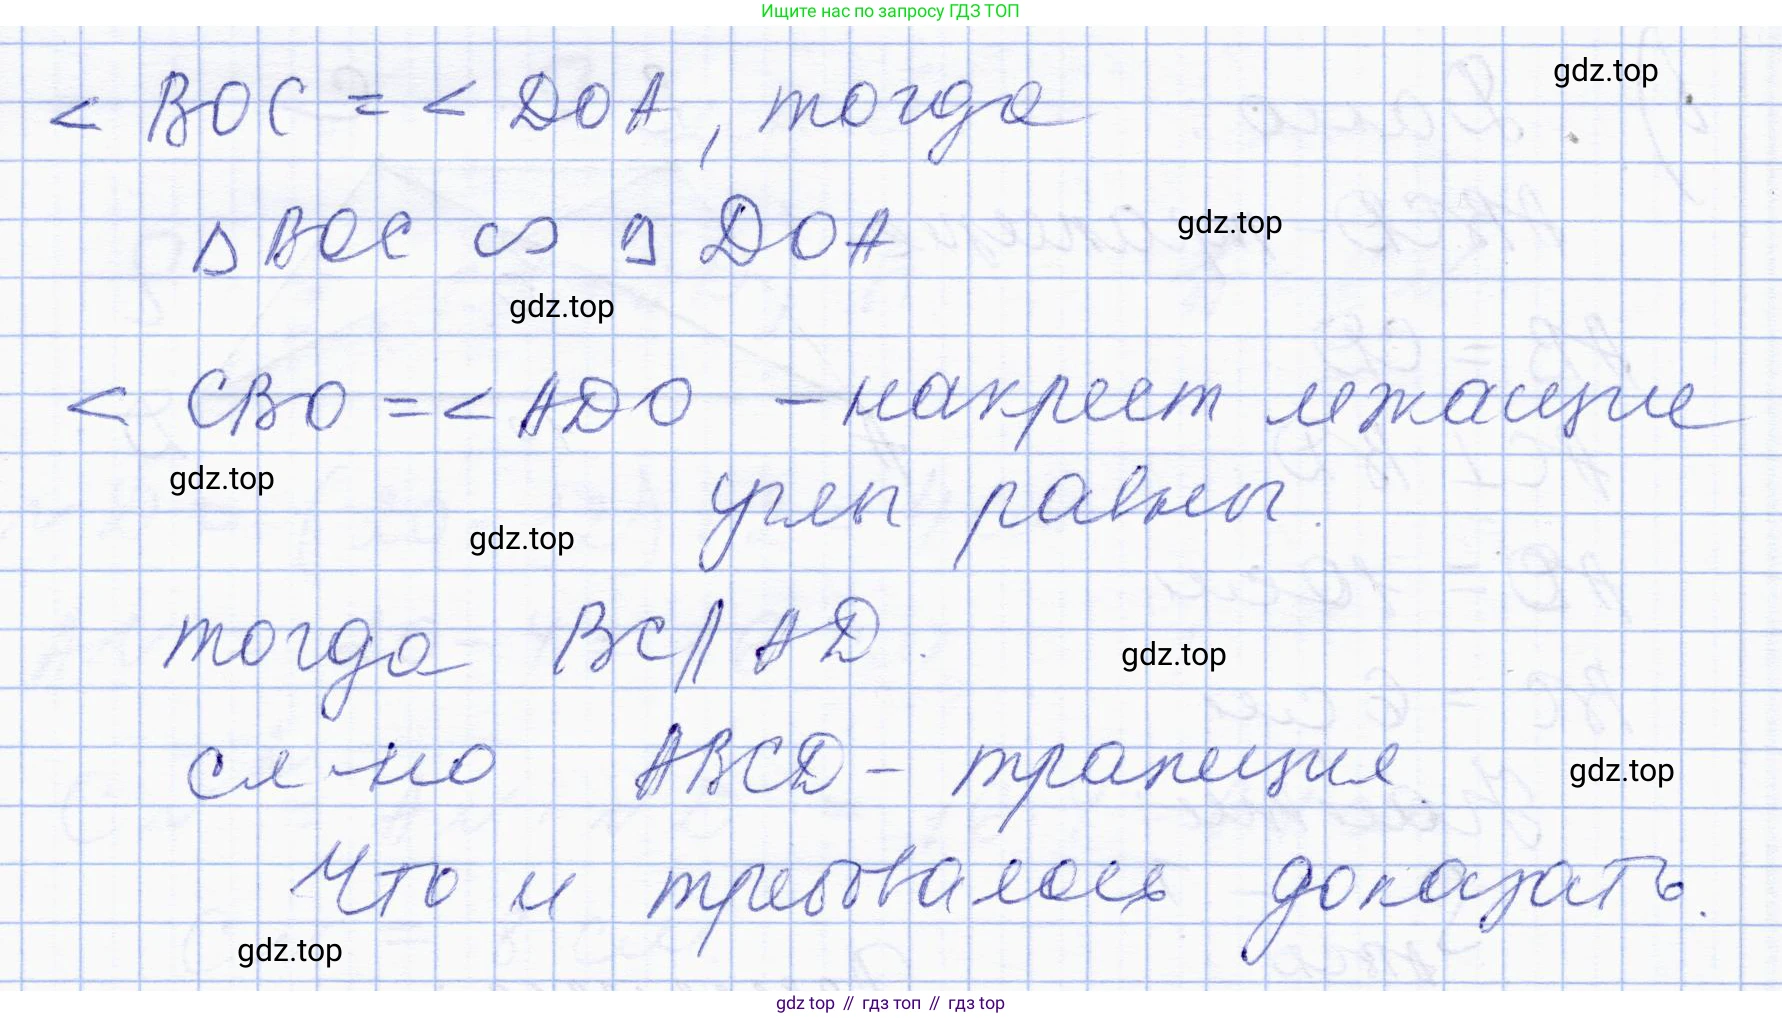 Ищите нас по запросу ГДЗ ТОП
gdz.top
< BOC = < DOA, тогда
gdz.top
Δ BOC ∽ Δ DOA
gdz.top
< CBO = < ADO – накрест лежащие
gdz.top
углы равны.
gdz.top
тогда BC || AD.
gdz.top
сл-но ABCD – трапеция.
gdz.top
Что и требовалось доказать.
gdz.top
gdz top // гдз топ // гдз top